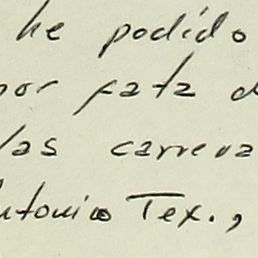 he podido
por fata d
las carrera
Antonio Tex.,